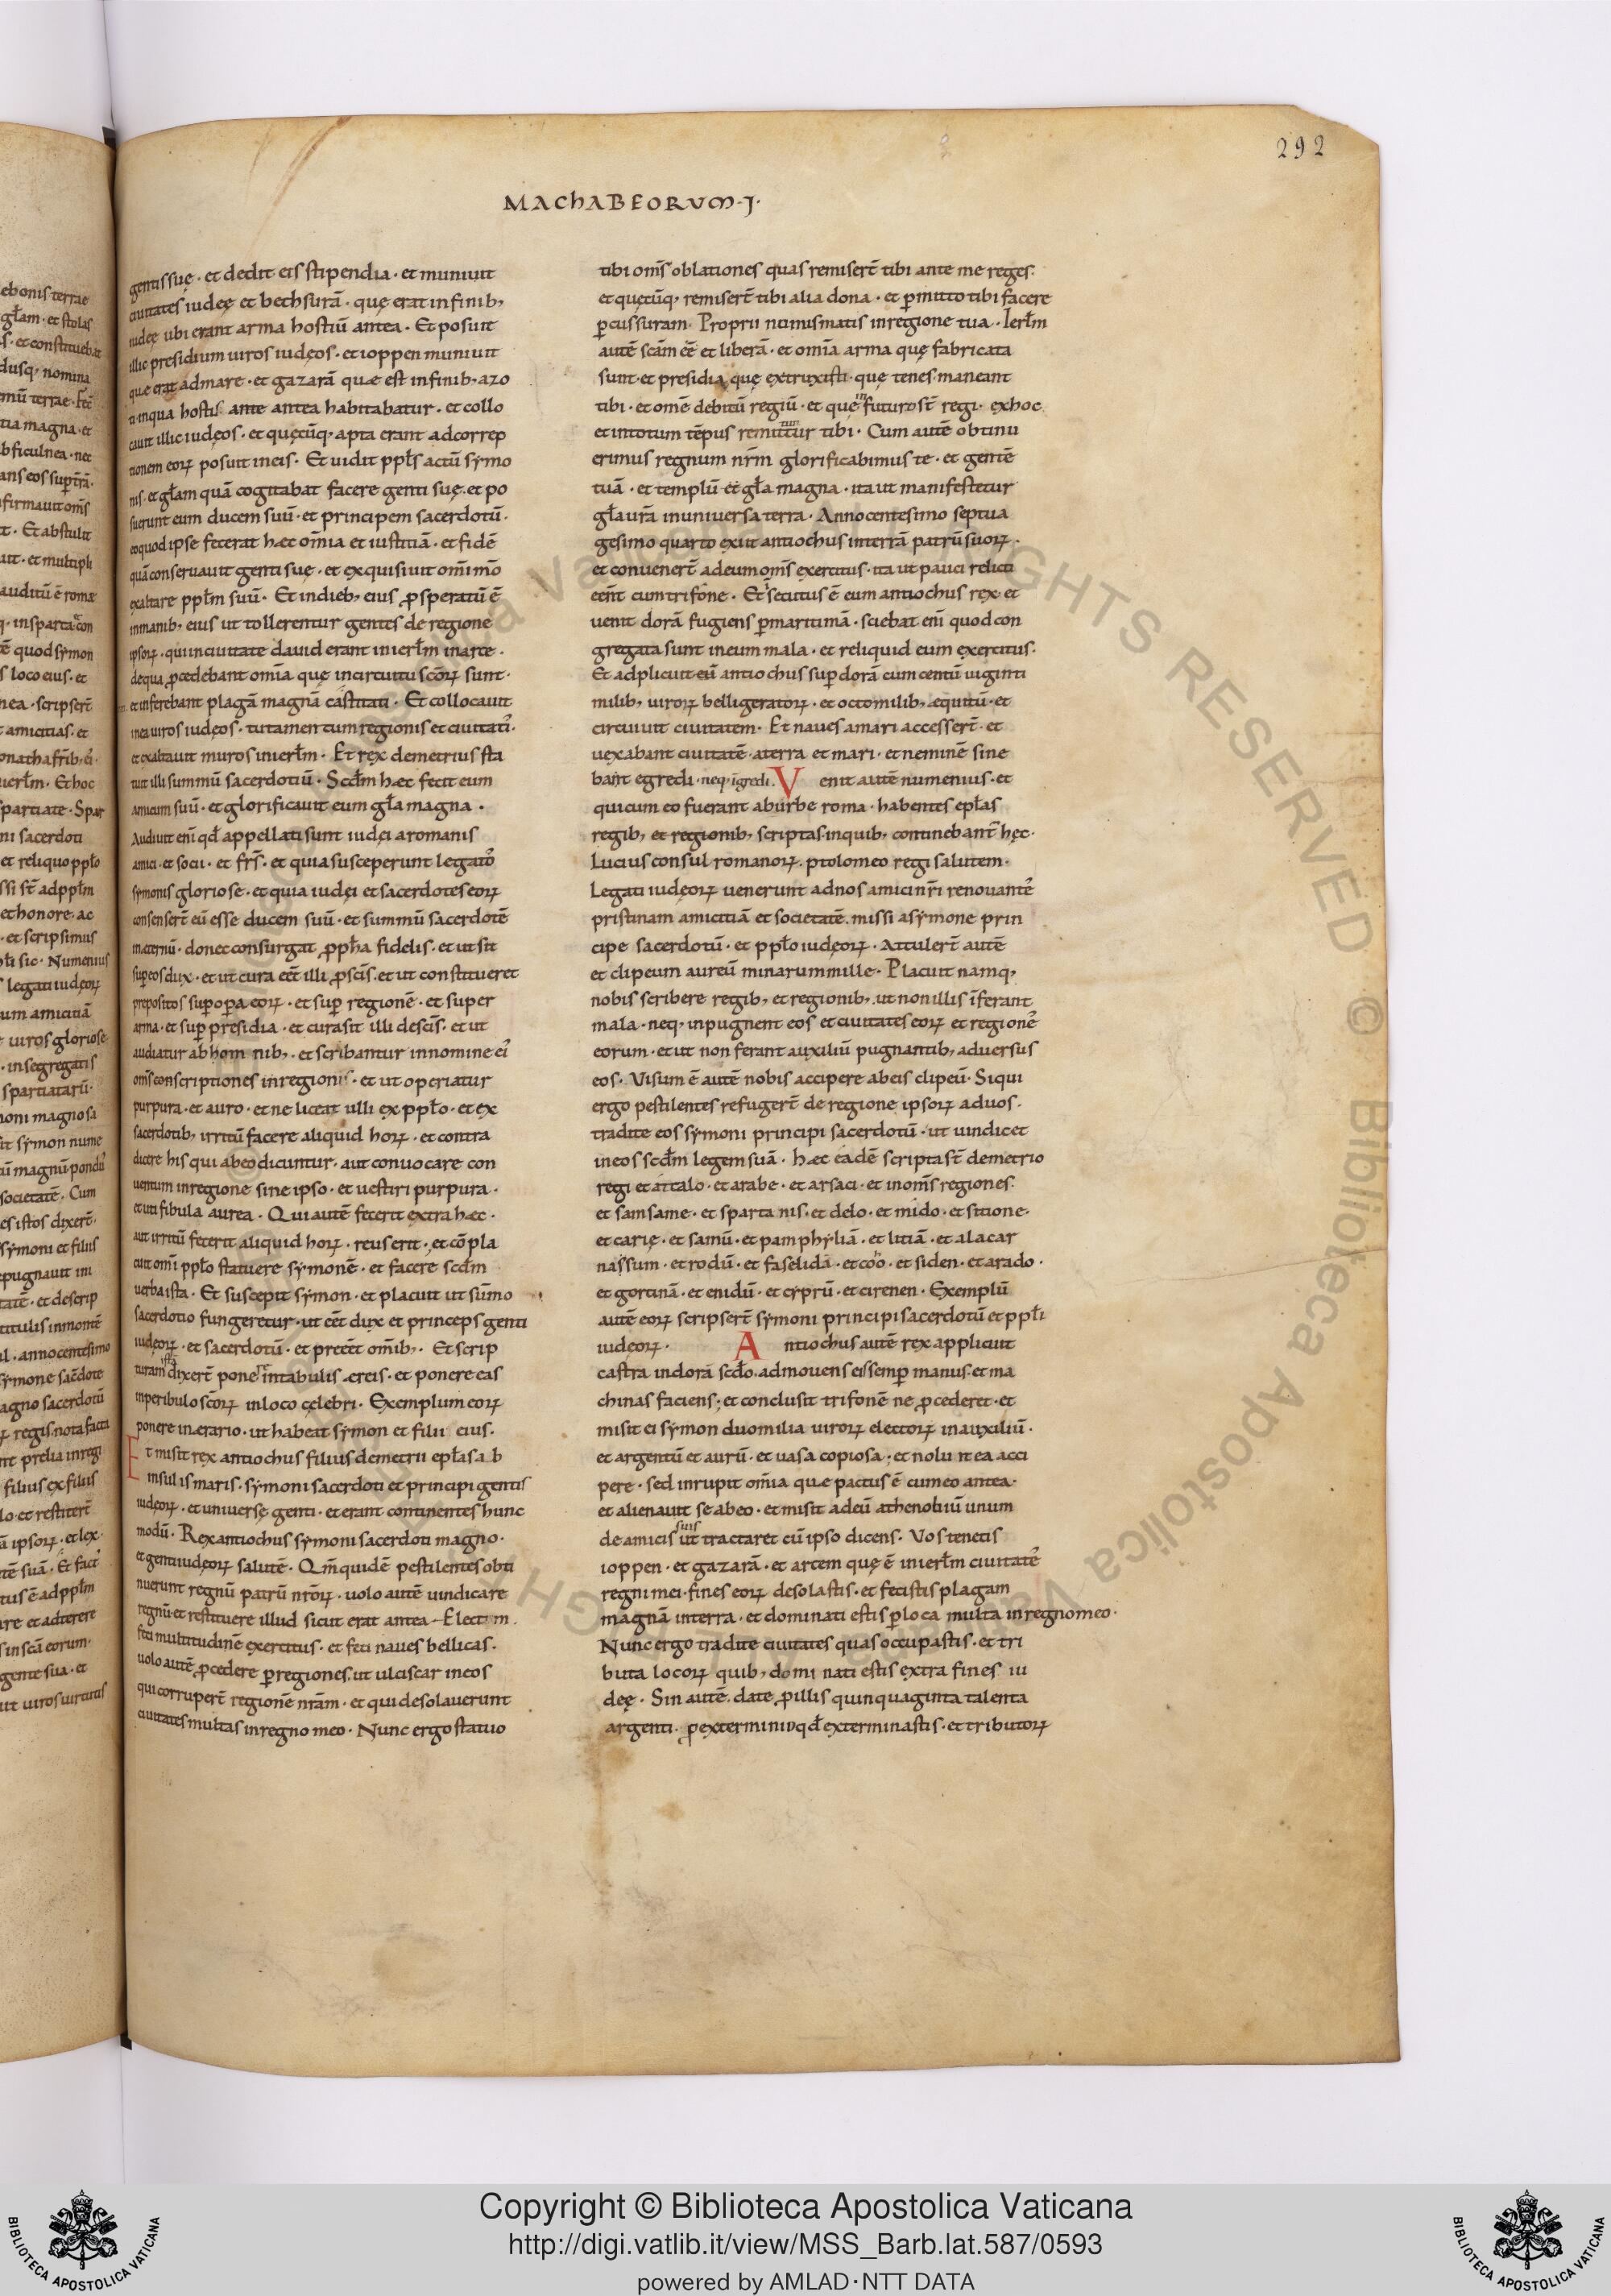 292
MAChABEORVM·I·
gentis suę· et dedit eis stipendia· et muniuit
ciuitates iudeę et bethsurā· quę erat in finib;
iudeę ubi erant arma hostiū antea· Et posuit
illic presidium uiros iudęos· et ioppen muniuit
quæ erat ad mare· et gazarā quæ est in finib; azo
ti inqua hostis ante antea habitabatur· et collo
cauit illic iudęos· et quęcūq; apta erant ad correp
tionem eorꝝ posuit in eis· Et uidit ppl̄s actū sẏmo
nis· et gl̄am quā cogitabat facere genti suę· et po
suerunt eum ducem suū· et principem sacerdotū·
eoquod ipse fecerat hæc om̄ia et iustitiā· et fidē
quā conseruauit genti suę· et exquisiuit om̄i m̄o
exaltare ppl̄m suū· Et in dieb; eius ꝓsperatū ē
in manib; eius ut tollerentur gentes de regione
ipsorꝝ· qui in ciuitate dauid erant in ierl̄m in arce·
de qua ꝓcedebant om̄ia quę in circuitu sc̄orꝝ sunt·
et inferebant plagā magnā castitati· Et collocauit
in ea uiros iudęos· tutamentum regionis et ciuitati᾽·
et exaltauit muros in ierl̄m· Et rex demetrius sta
tuit illi summū sacerdotiū· Scd̄m hæc fecit eum
amicum suū· et glorificauit eum gl̄a magna·
Audiuit eni̅ qd̄ appellati sunt iudęi a romanis
amici· et socii· et fr̄s· et quia susceperunt legato᾽
sẏmonis gloriose· et quia iudęi et sacerdotes eorꝝ
consenser̄t eū esse ducem suū· et summū sacerdotē
in æternū· donec consurgat ꝓph̄a fidelis· et ut sit
sup̲ eos dux· et ut cura eēt illi ꝓ sc̄is· et ut constitueret
prepositos sup̲ op̲a eorꝝ· et sup̲ regionē· et super
arma· et sup̲ presidia· et cura sit illi de sc̄is· et ut
audiatur ab hominib;· et scribantur in nomine ei᾽
om̄s conscriptiones in regionis· et ut operiatur
purpura· et auro· et ne liceat ulli ex ppl̄o· et ex
sacerdotib; irritū facere aliquid horꝝ· et contra
dicere his qui ab eo dicuntur· aut conuocare con
uentum in regione sine ipso· et uestiri purpura·
et uti fibula aurea· Qui autē fecerit extra hæc·
aut irritū fecerit aliquid horꝝ· reus erit· et cōpla
cuit om̄i ppl̄o statuere sẏmonē· et facere scd̄m
uerba ista· Et suscepit sẏmon· et placuit ut sūmo
sacerdotio fungeretur· ut eēt dux et princeps genti
iudęorꝝ· et sacerdotū· et preeēt om̄ib;· Et scrip
turam istā dixer̄t ponere in tabulis æreis· et ponere eas
in peribulo sc̄orꝝ in loco celebri· Exemplum eorꝝ
ponere in ærario· ut habeat sẏmon et filii eius·
Et misit rex antiochus filius demetrii epl̄as ab
insulis maris· sẏmoni sacerdoti et principi gentis
iudęorꝝ· et uniuersę genti· et erant continentes hunc
modū· Rex antiochus sẏmoni sacerdoti magno·
et genti iudęorꝝ salutē· Qm̄ quidē pestilentes obti
nuerunt regnū patrū nr̄orꝝ· uolo autē uindicare
regnū et restituere illud sicut erat antea· Electam
feci multitudinē exercitus· et feci naues bellicas·
uolo autē ꝓcedere p̲ regiones· ut ulciscar in eos
qui corruper̄t regionē nr̄am· et qui desolauerunt
ciuitates multas in regno meo· Nunc ergo statuo
tibi om̄s oblationes quas remiser̄t tibi ante me reges·
et quęcūq; remiser̄t tibi alia dona· et p̲mitto tibi facere
p̲cussuram· Proprii numismatis in regione tua· Ierl̄m
autē sc̄am eē et liberā· et om̄ia arma quę fabricata
sunt· et presidia quę extruxisti· quę tenes· maneant
tibi· et omē debitū regiū· et quę futura st̄ regi· ex hoc
et in totum tēpus remittuntur tibi· Cum autē obtinu
erimus regnum nr̄m glorificabimus te· et gentē
tuā· et templū et gl̄a magna· ita ut manifestetur
gl̄a ur̄a in uniuersa terra· Anno centesimo septua
gesimo quarto exiit antiochus in terrā patrū suorꝝ·
et conuener̄t ad eum om̄s exercitus· ita ut pauci relicti
eēnt cum trifone· Et secutus ē eum antiochus rex· et
uenit dorā fugiens p̲ maritimā· sciebat eni̅ quod con
gregata sunt in eum mala· et reliquid eum exercitus·
Et adplicuit eū antiochus sup̲ dorā cum centū uiginti
milib; uirorꝝ belligeratorꝝ· et octo milib; æquitū· et
circuiuit ciuitatem· Et naues a mari accesser̄t· et
uexabant ciuitatē· a terra et mari· et neminē sine
bant egredi· neq; īgredi· Venit autē numenius· et
qui cum eo fuerant ab urbe roma· habentes epl̄as
regib; et regionib; scriptas· in quib; continebant hęc·
Lucius consul romanorꝝ· ptolomeo regi salutem·
Legati iudęorꝝ uenerunt ad nos amici nr̄i renouante᾽
pristinam amicitiā et societatē· missi a sẏmone prin
cipe sacerdotū· et ppl̄o iudęorꝝ· Attuler̄t autē
et clipeum aureū minarum mille· Placuit namq;
nobis scribere regib; et regionib; ut non illis īferant
mala· neq; inpugnent eos et ciuitates eorꝝ et regione᾽
eorum· et ut non ferant auxiliū pugnantib; aduersus
eos· Visum ē autē nobis accipere ab eis clipeū· Siqui
ergo pestilentes refuger̄t de regione ipsorꝝ ad uos·
tradite eos sẏmoni principi sacerdotū· ut uindicet
in eos scd̄m legem suā· hæc eadē scripta st̄ demetrio
regi et attalo· et arabe· et arsaci· et in om̄s regiones·
et samsame· et spartanis· et delo· et mido· et sitione·
et carię· et samū· et pamphẏliā· et litiā· et alacar
nassum· et rodū· et faselidā· et coo· et siden· et arado·
et gortinā· et enidū· et cẏprū· et cirenen· Exemplū
autē eorꝝ scripser̄t sẏmoni principi sacerdotū et ppl̄i
iudęorꝝ· Antiochus autē rex applicuit
castra in dorā scd̄o· admouens ei semp̲ manus· et ma
chinas faciens· et conclusit trifonē ne ꝓcederet· et
misit ei sẏmon duo milia uirorꝝ electorꝝ in auxiliū·
et argentū et aurū· et uasa copiosa· et noluit ea acci
pere· sed inrupit om̄ia quæ pactus ē cum eo antea·
et alienauit se ab eo· et misit ad eū athenobiū unum
de amicis suis ut tractaret cū ipso dicens· Vos tenetis
ioppen· et gazarā· et arcem quę ē in ierl̄m ciuitate᾽
regni mei· fines eorꝝ desolastis· et fecistis plagam
magnā in terra· et dominati estis p̲ loca multa in regno meo·
Nunc ergo tradite ciuitates quas occupastis· et tri
buta locorꝝ quib; dominati estis extra fines iu
deę· Sin autē· date ꝓ illis quinquaginta talenta
argenti· ꝓ exterminio qd̄ exterminastis· et tributorꝝ
Copyright © Biblioteca Apostolica Vaticana
http://digi.vatlib.it/view/MSS_Barb.lat.587/0593
powered by AMLAD·NTT DATA